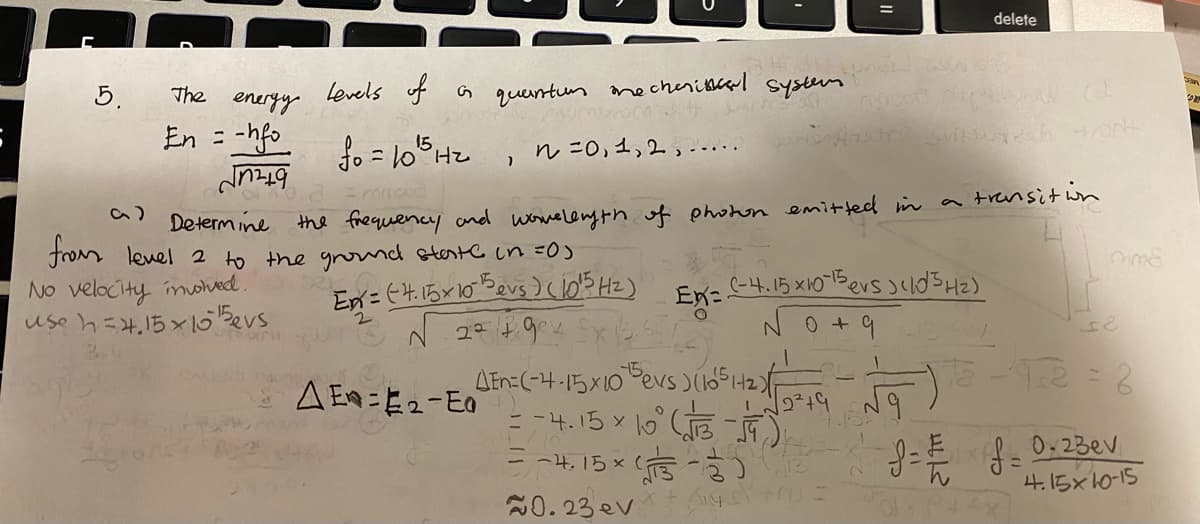 =
delete
5. The energy levels of a quantum mechanical system
En = -hf₀ / √n²+9   f₀ = 10¹⁵ Hz , n = 0, 1, 2, .....
a) Determine the frequency and wavelength of photon emitted in a transition
from level 2 to the ground state (n = 0)
No velocity involved.
use h = 4.15 × 10⁻¹⁵ evs
E₂ = (-4.15 × 10⁻¹⁵ evs)(10¹⁵ Hz) / √ 2² + 9
E₀ = (-4.15 × 10⁻¹⁵ evs)(10¹⁵ Hz) / √ 0 + 9
ΔEn = E₂ - E₀
ΔEn = (-4.15 × 10⁻¹⁵ evs)(10¹⁵ Hz)(1/√2²+9 - 1/√9)
= -4.15 × 10⁰ (1/√13 - 1/√9)
= -4.15 × (1/√13 - 1/3)
≈ 0.23 ev
f = E/h   f = 0.23 ev / 4.15 × 10-15